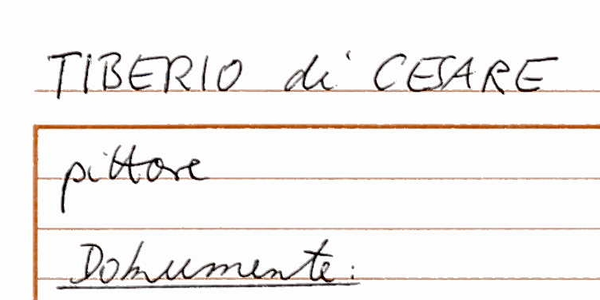 TIBERIO di CESARE
pittore
Dokumente: